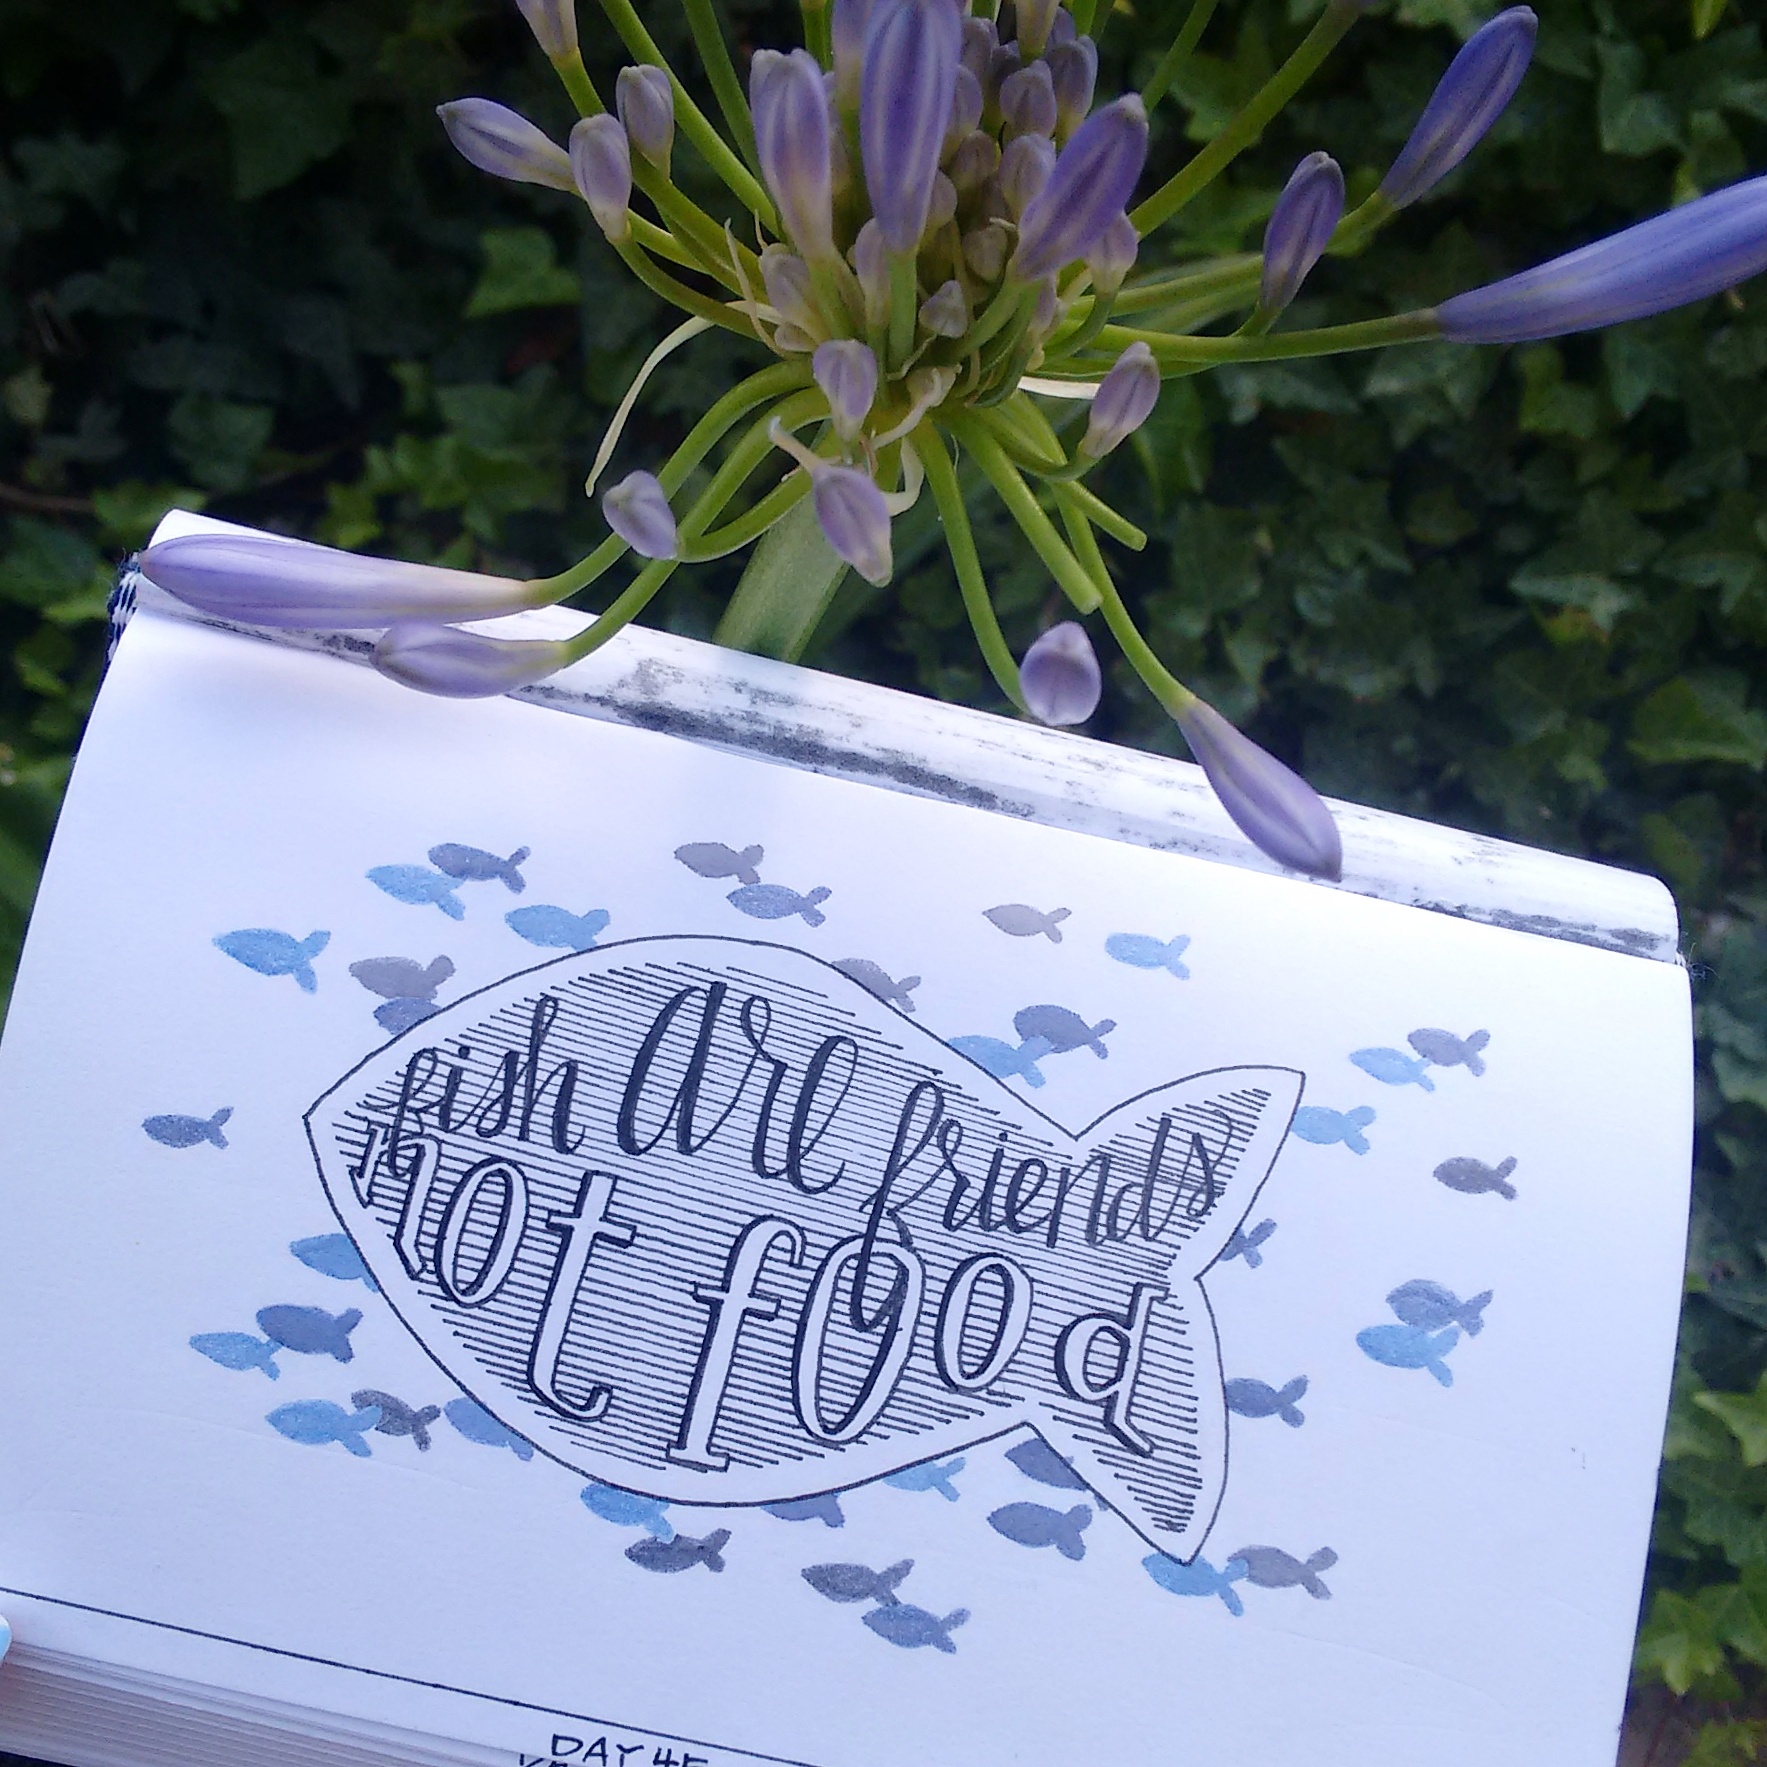 fish are friends
not food
DAY 45